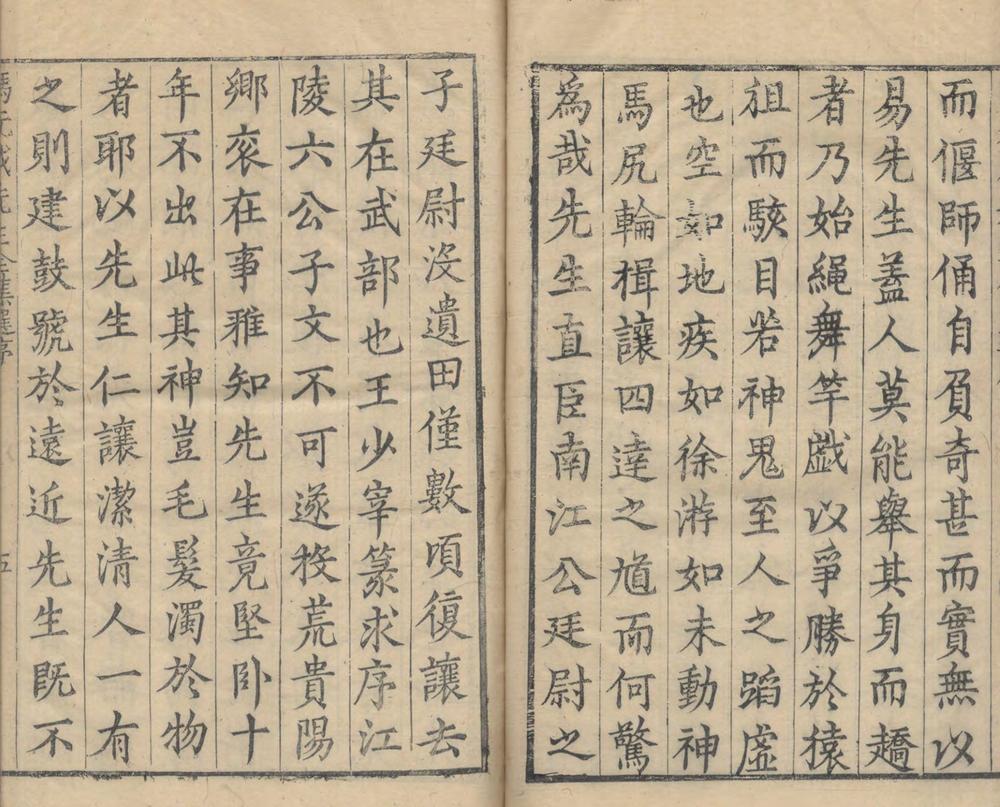 而偃師俑自負奇甚而實無以
易先生蓋人莫能舉其身而趫
者乃始繩舞竿戲以爭勝於猿
狙而駭目若神鬼至人之蹈虛
也空如地疾如徐游如未動神
馬尻輪楫讓四逹之馗而何驚
為哉先生直臣南江公廷尉之
子廷尉沒遺田僅數頃復讓去
其在武部也王少宰篆求序江
陵六公子文不可遂投荒貴陽
鄉衮在事雅知先生竟堅卧十
年不出此其神豈毛髮濁於物
者耶以先生仁讓潔清人一有
之則建鼓號於遠近先生既不
馮元成先生全集選序
五